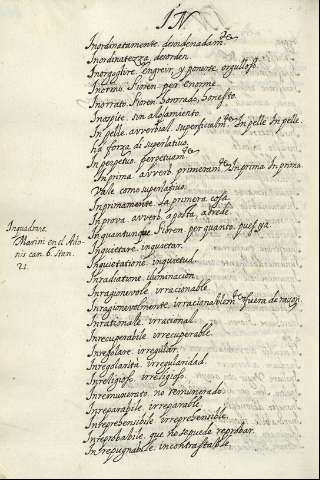 IN
Inordinatamente. desordenadamte
Inordinatezza. desorden.
Inorgoglire. engreir, y ponerse orgulloso.
Inorme. Fioren. per enorme
Inorrato. Fioren. honrado, honesto.
Inospite. sin alojamento.
In pelle. avverbial. superficialmte In pelle In pelle
ha forza di superlativo.
In perpetuo. perpetuamte
In prima. avverb. primeramte In prima In prima
Vale como superlativo.
Inprimamente. La primera cosa.
In prova. avverb. aposta, abrede
In quantunque. Fioren. per quanto. pues ya.
Inquietare. inquietar.
Inquietatione. inquietud.
Inquadrare.
Marin. en el Ado-
nis can. 6. Stan.
21.
Inradiatione. iluminacion.
Inragionevole. irracionable.
Inragionevolmente. irracionablemte fuera de razon.
Inrationale. irracional.
Inrecuperabile. irrecuperable.
Inregolare. irregular.
Inregolarità. irregularidad.
Inreligioso. irreligioso.
Inremunerato. no remunerado.
Inreparabile. irreparable.
Inreprehensibile. irreprehensible.
Inreprobabile. que no se puede reprobar.
Inrepugnabile. incontrastable.